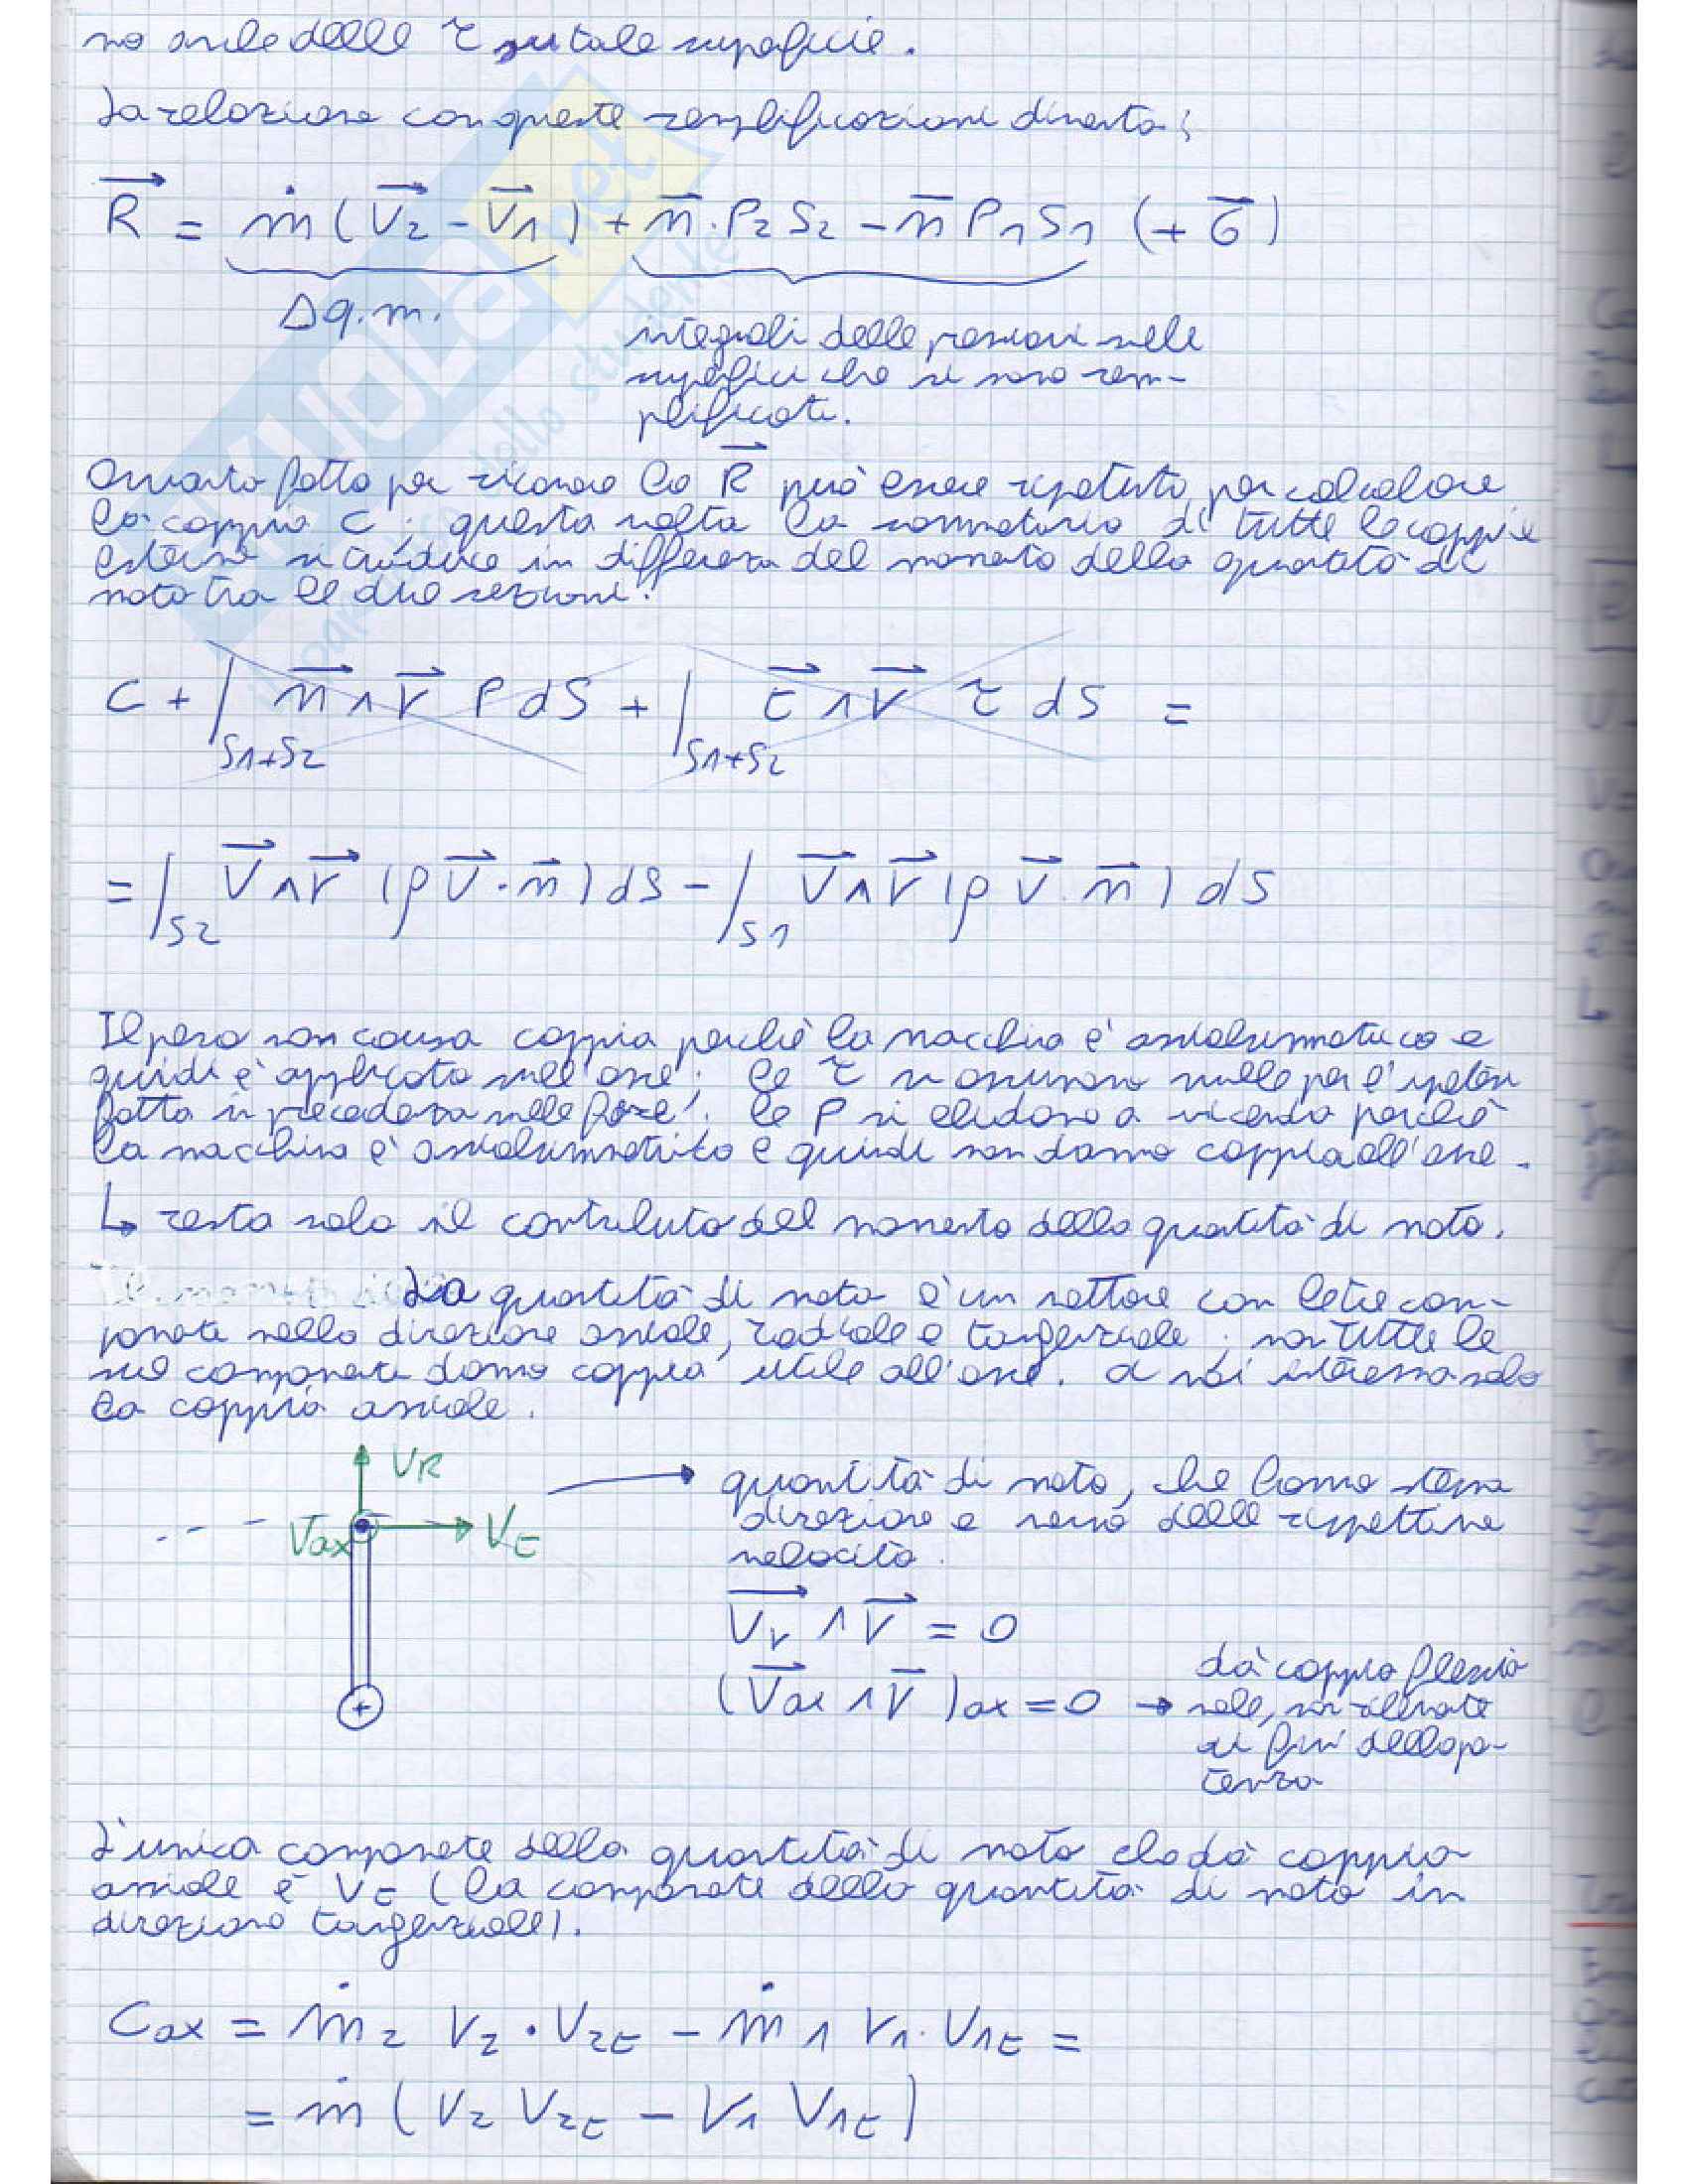 no anche delle τ su tale superficie.
La relazione con queste semplificazioni diventa:
R = ṁ (V2 - V1) + n · P2 S2 - n P1 S1 (+ G)
Δq.m.
integrali delle pressioni nelle
superfici che si sono sem-
plificati.
Quanto fatto per ricavare la R può essere ripetuto per calcolare
la coppia C; questa volta la sommatoria di tutte le coppie
esterne si traduce in differenza del momento della quantità di
moto tra le due sezioni.
C + ∫S1+S2 n ∧ r P dS + ∫S1+S2 t ∧ r τ dS =
= ∫S2 V ∧ r (ρ V · n) dS - ∫S1 V ∧ r (ρ V · n) dS
Il peso non causa coppia perché la macchina è assialsimmetrica e
quindi è applicato sull'asse; le τ si assumono nulle per l'ipotesi
fatta in precedenza sulle forze; le P si elidono a vicenda perché
la macchina è assialsimmetrica e quindi non danno coppia all'asse.
↳ resta solo il contributo del momento della quantità di moto.
La quantità di moto è un vettore con le tre com-
ponenti nella direzione assiale, radiale e tangenziale; non tutte le
sue componenti danno coppia utile all'asse. A noi interessa solo
la coppia assiale.
VR
Vax Vt
quantità di moto, che hanno stessa
direzione e verso delle rispettive
velocità.
Vr ∧ r = 0
(Vax ∧ r)ax = 0 → dà coppia flessio
nale, non rilevante
ai fini della po-
tenza
L'unica componente della quantità di moto che dà coppia
assiale è Vt (la componente della quantità di moto in
direzione tangenziale).
Cax = ṁ2 r2 · V2t - ṁ1 r1 · V1t =
= ṁ (r2 V2t - r1 V1t)
SKUOLA.net